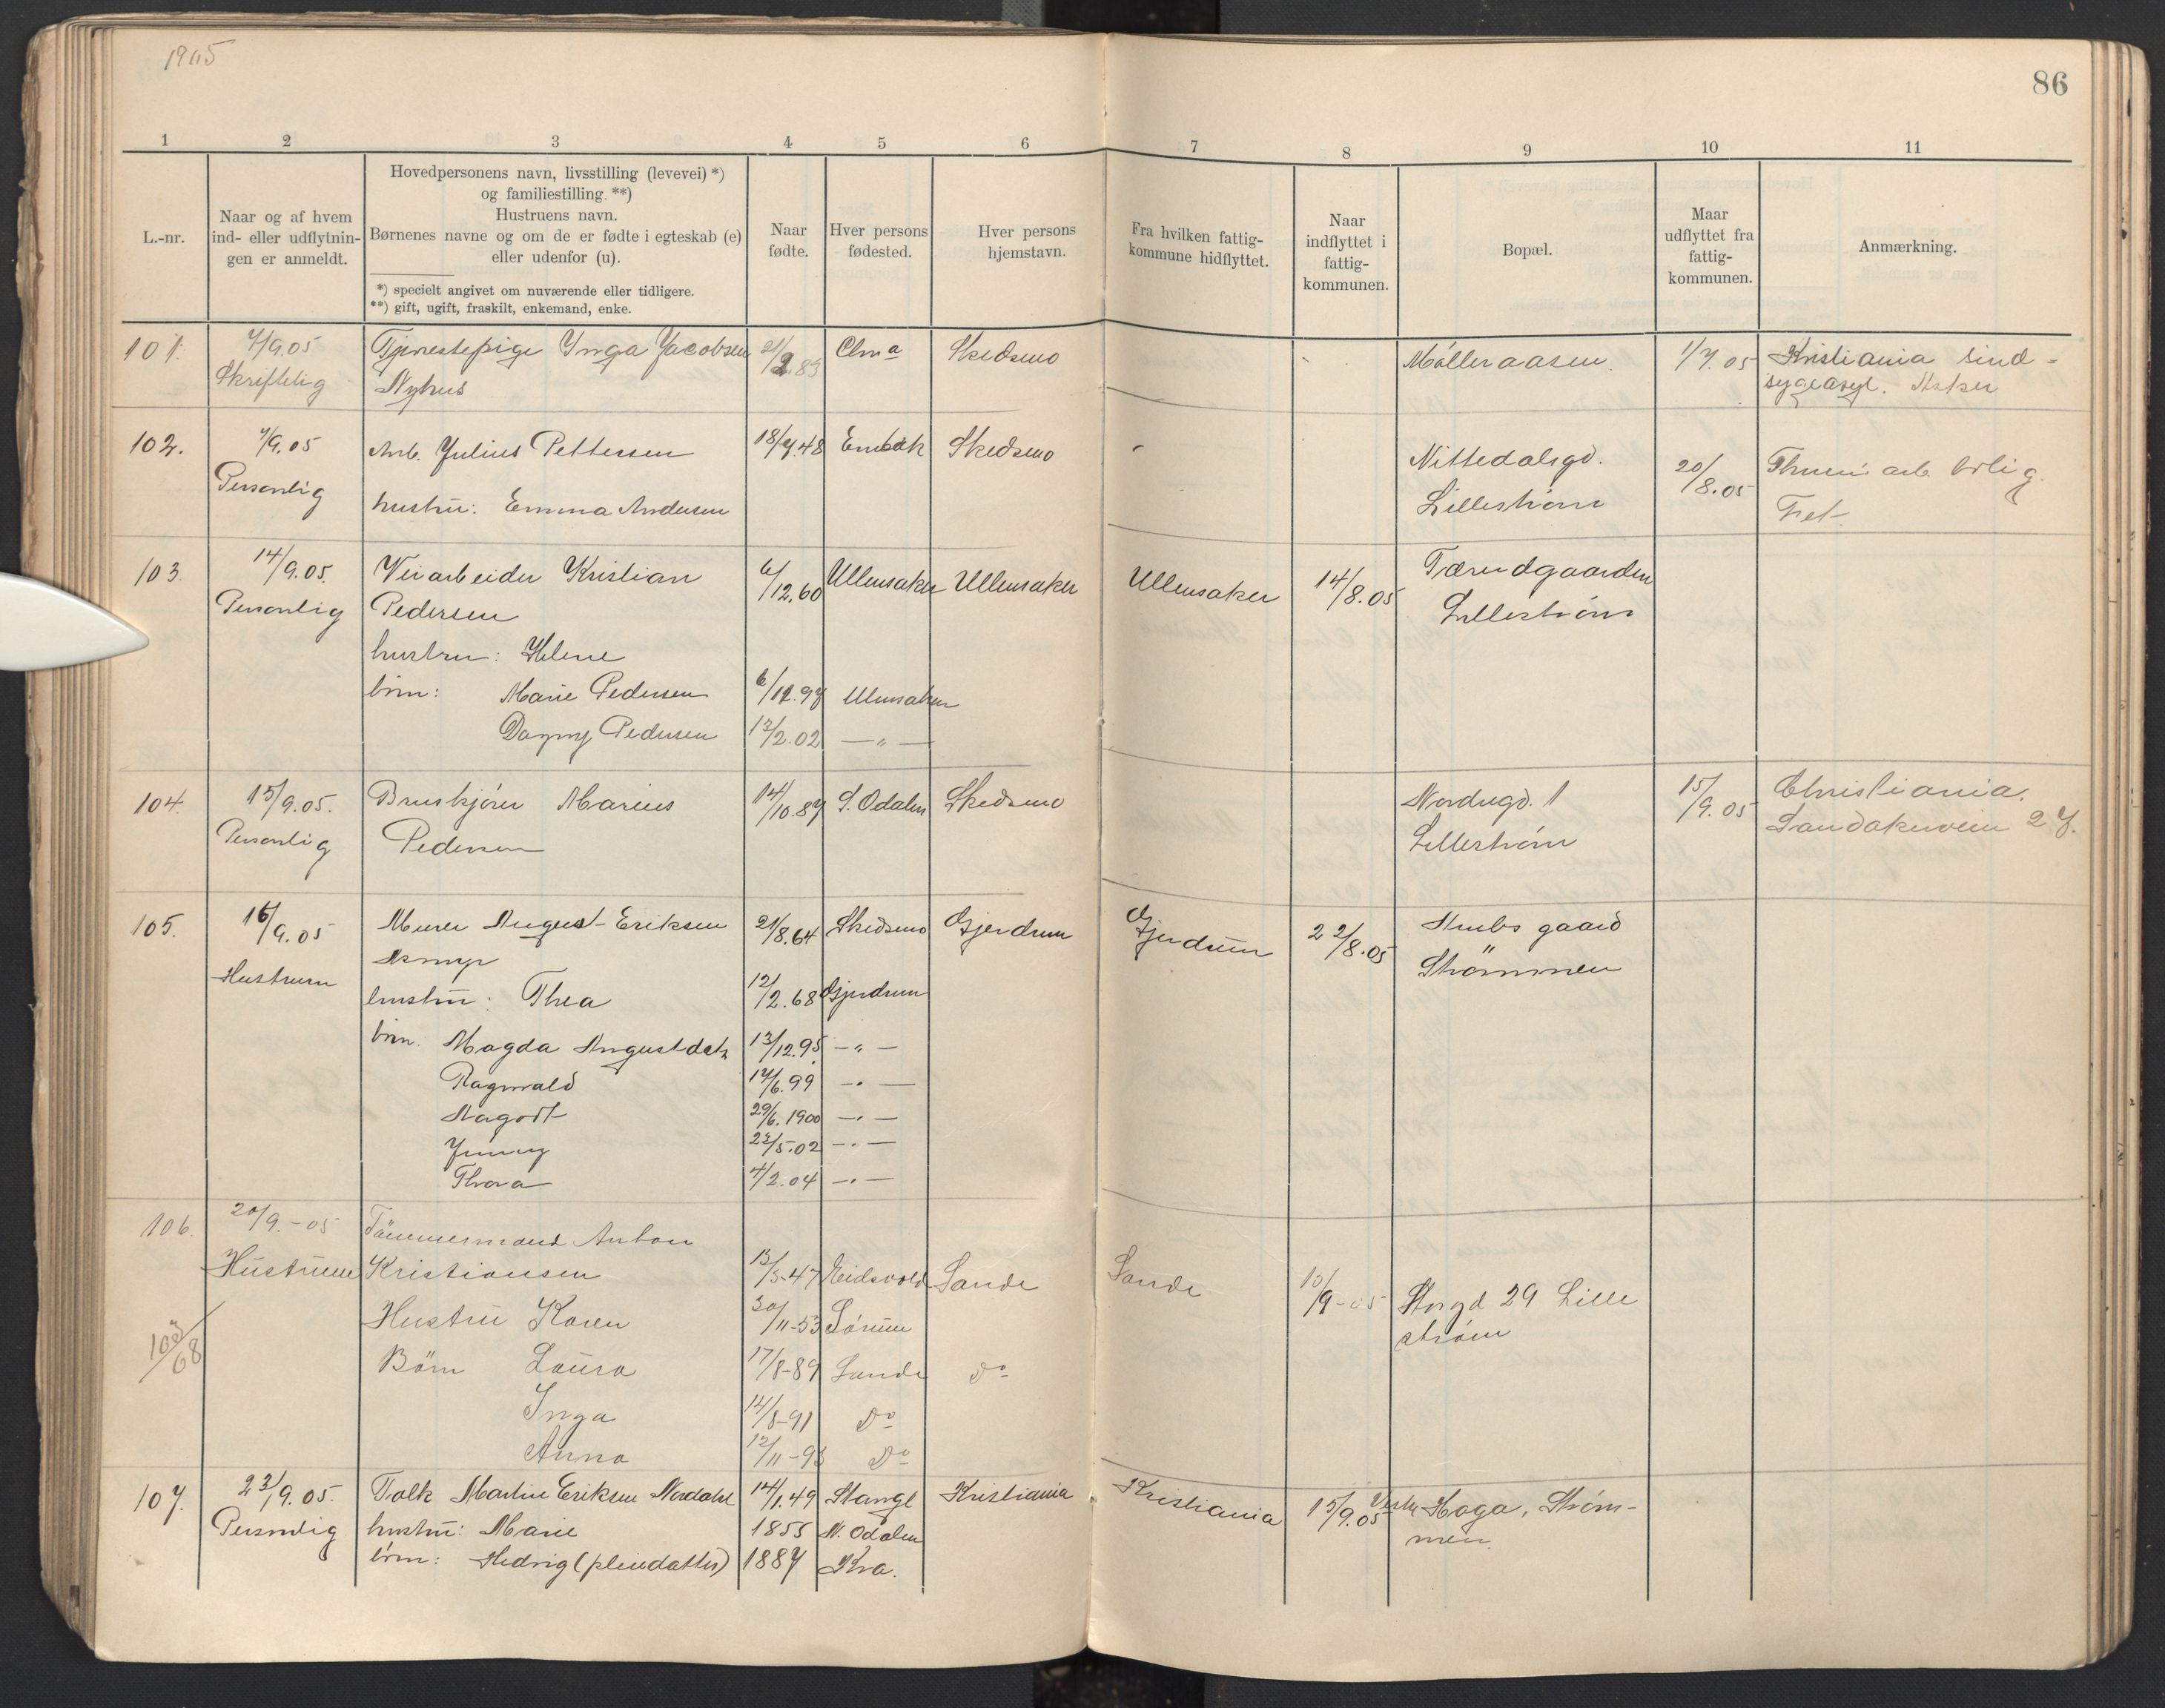 1905
86
1 2 3 4 5 6 7 8 9 10 11
L.-nr.
Naar og af hvem
ind- eller udflytnin-
gen er anmeldt.
Hovedpersonens navn, livsstilling (levevei) *)
og familiestilling. **)
Hustruens navn.
Børnenes navne og om de er fødte i egteskab (e)
eller udenfor (u).
*) specielt angivet om nuværende eller tidligere.
**) gift, ugift, fraskilt, enkemand, enke.
Naar
fødte.
Hver persons
fødested.
Hver persons
hjemstavn.
Fra hvilken fattig-
kommune hidflyttet.
Naar
indflyttet i
fattig-
kommunen.
Bopæl.
Maar
udflyttet fra
fattig-
kommunen.
Anmærkning.
101. 7/9.05 Tjenestepige Inga Jacobsen 21/2.83 Skedsmo Mølleraasen. 1/7.05 Kristiania sind-
Skriftelig Nyhus sygeasyl. Asker
102. 7/9.05 Arb. Julius Pettersen 18/7.48 Enebak Skedsmo Nittedalsgd. 20/8.05 arb. bolig
Personlig hustru: Emma Andersen Lillestrøm Fet
103. 14/9.05. Veiarbeider Kristian 6/12.60 Ullensaker Ullensaker Ullensaker 14/8.05 Tærudgaarden
Personlig Pedersen Lillestrøm
hustru: Helene
børn: Marie Pedersen 6/12.97 Ullensaker
Dagny Pedersen 13/2.02 — " —
104. 15/9.05. Bruskjører Marius 14/10.87 S. Odalen Skedsmo Nordregd. 1 15/9.05 Christiania.
Personlig Pedersen Lillestrøm Sandakerveien 27.
105. 16/9.05 Murer August Eriksen 21/8.64 Skedsmo Gjerdrum Gjerdrum 22/8.05 Stubs gaard
Asmyr Strømmen
Hustruen hustru: Thea 12/2.68 Gjerdrum
børn Magda Augustdatr 13/12.95 — " —
Ragnvald 14/6.99 — " —
Aagodt 29/6.1900 — " —
Jenny 23/5.02 — " —
Thora 4/2.04 — " —
106. 20/9.-05 Tömmermand Anton
Hustruen Kristiansen 13/3-47 Eidsvold Sande Sande 10/9-05 Storgd 29 Lille
Hustru Karen 30/11-53 Sørum strøm
Börn Laura 17/8-89 Sande Do
Inga 14/8-91 Do
Anna 12/11-93 Do
107. 23/9.05. Tolk Martin Eriksen Nordahl 14/1.49 Stange Kristiania Kristiania 15/9.05 Vestre Haga, Strøm-
Personlig hustru: Marie 1855 N. Odalen men.
børn: Hedvig (pleiedatter) 1887 Kra.